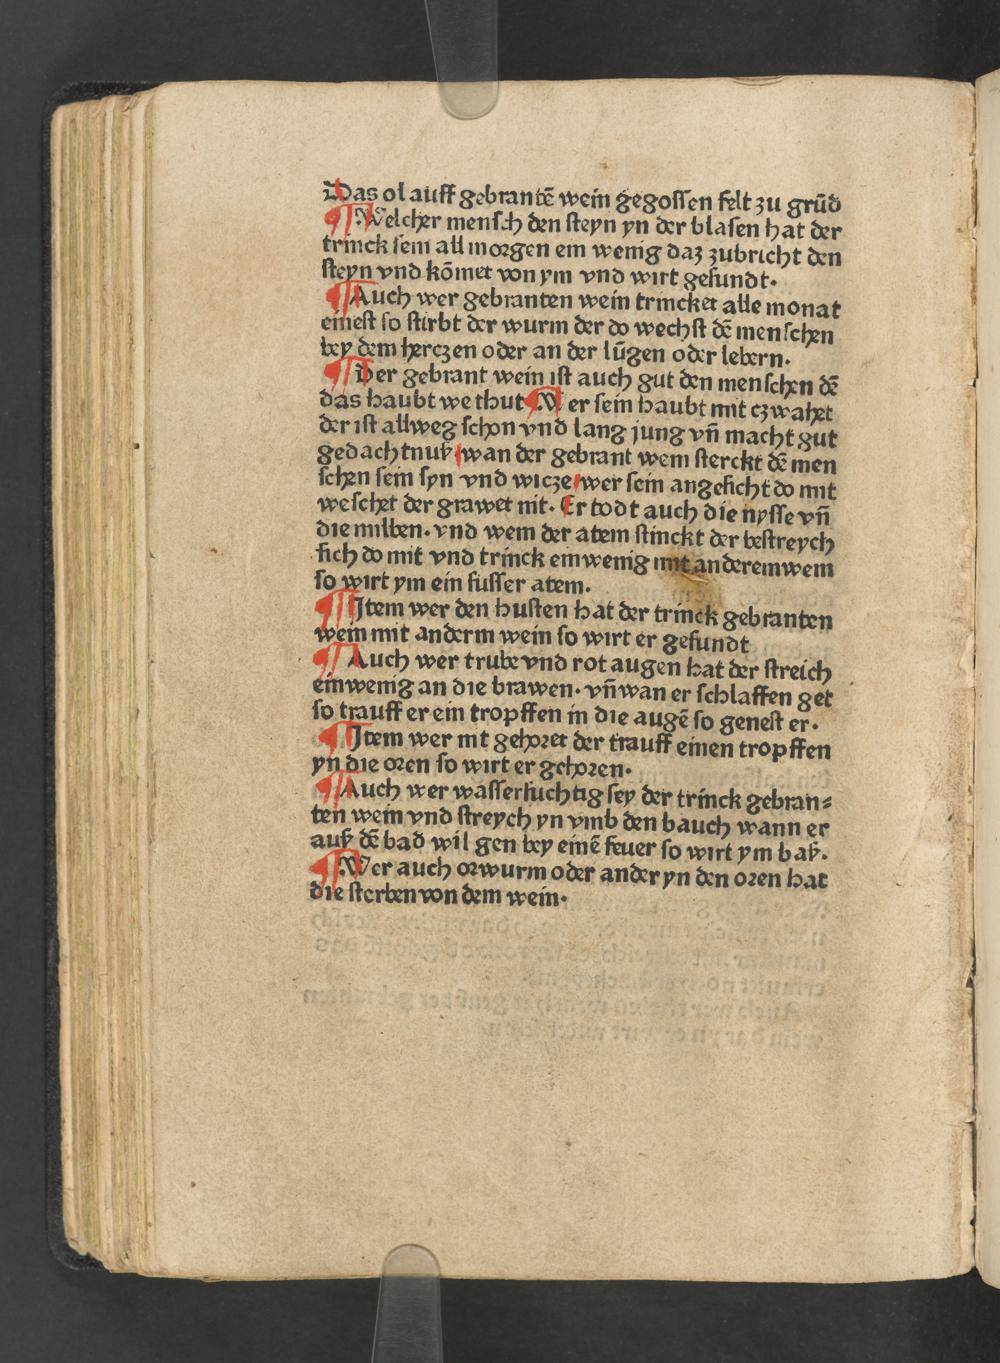 Das ol auff gebrantē wein gegossen felt zu grūd
¶ Welcher mensch den steyn yn der blasen hat der
trinck sein all morgen ein wenig daz zubricht den
steyn vnd kōmet von ym vnd wirt gesundt.
¶ Auch wer gebranten wein trincket alle monat
einest so stirbt der wurm der do wechst dē menschen
bey dem herczen oder an der lūgen oder lebern.
¶ Der gebrant wein ist auch gut den menschen dē
das haubt we thut ¶ Wer sein haubt mit czwahet
der ist allweg schon vnd lang jung vn̄ macht gut
gedachtnuß wan der gebrant wein sterckt dē men
schen sein syn vnd wicze wer sein angesicht do mit
weschet der grawet nit. Er todt auch die nysse vn̄
die milben. vnd wem der atem stinckt der bestreych
sich do mit vnd trinck ein wenig mit anderem wem
so wirt ym ein susser atem.
¶ Jtem wer den husten hat der trinck gebranten
wem mit anderm wein so wirt er gesundt
¶ Auch wer trube vnd rot augen hat der streich
ein wenig an die brawen. vn̄ wan er schlaffen get
so trauff er ein tropffen in die augē so genest er.
¶ Jtem wer nit gehoret der trauff einen tropffen
yn die oren so wirt er gehoren.
¶ Auch wer wassersuchtig sey der trinck gebran⸗
ten wein vnd streych yn vmb den bauch wann er
auß dē bad wil gen bey einē feuer so wirt ym baß.
¶ Wer auch orwurm oder ander yn den oren hat
die sterben von dem wein.